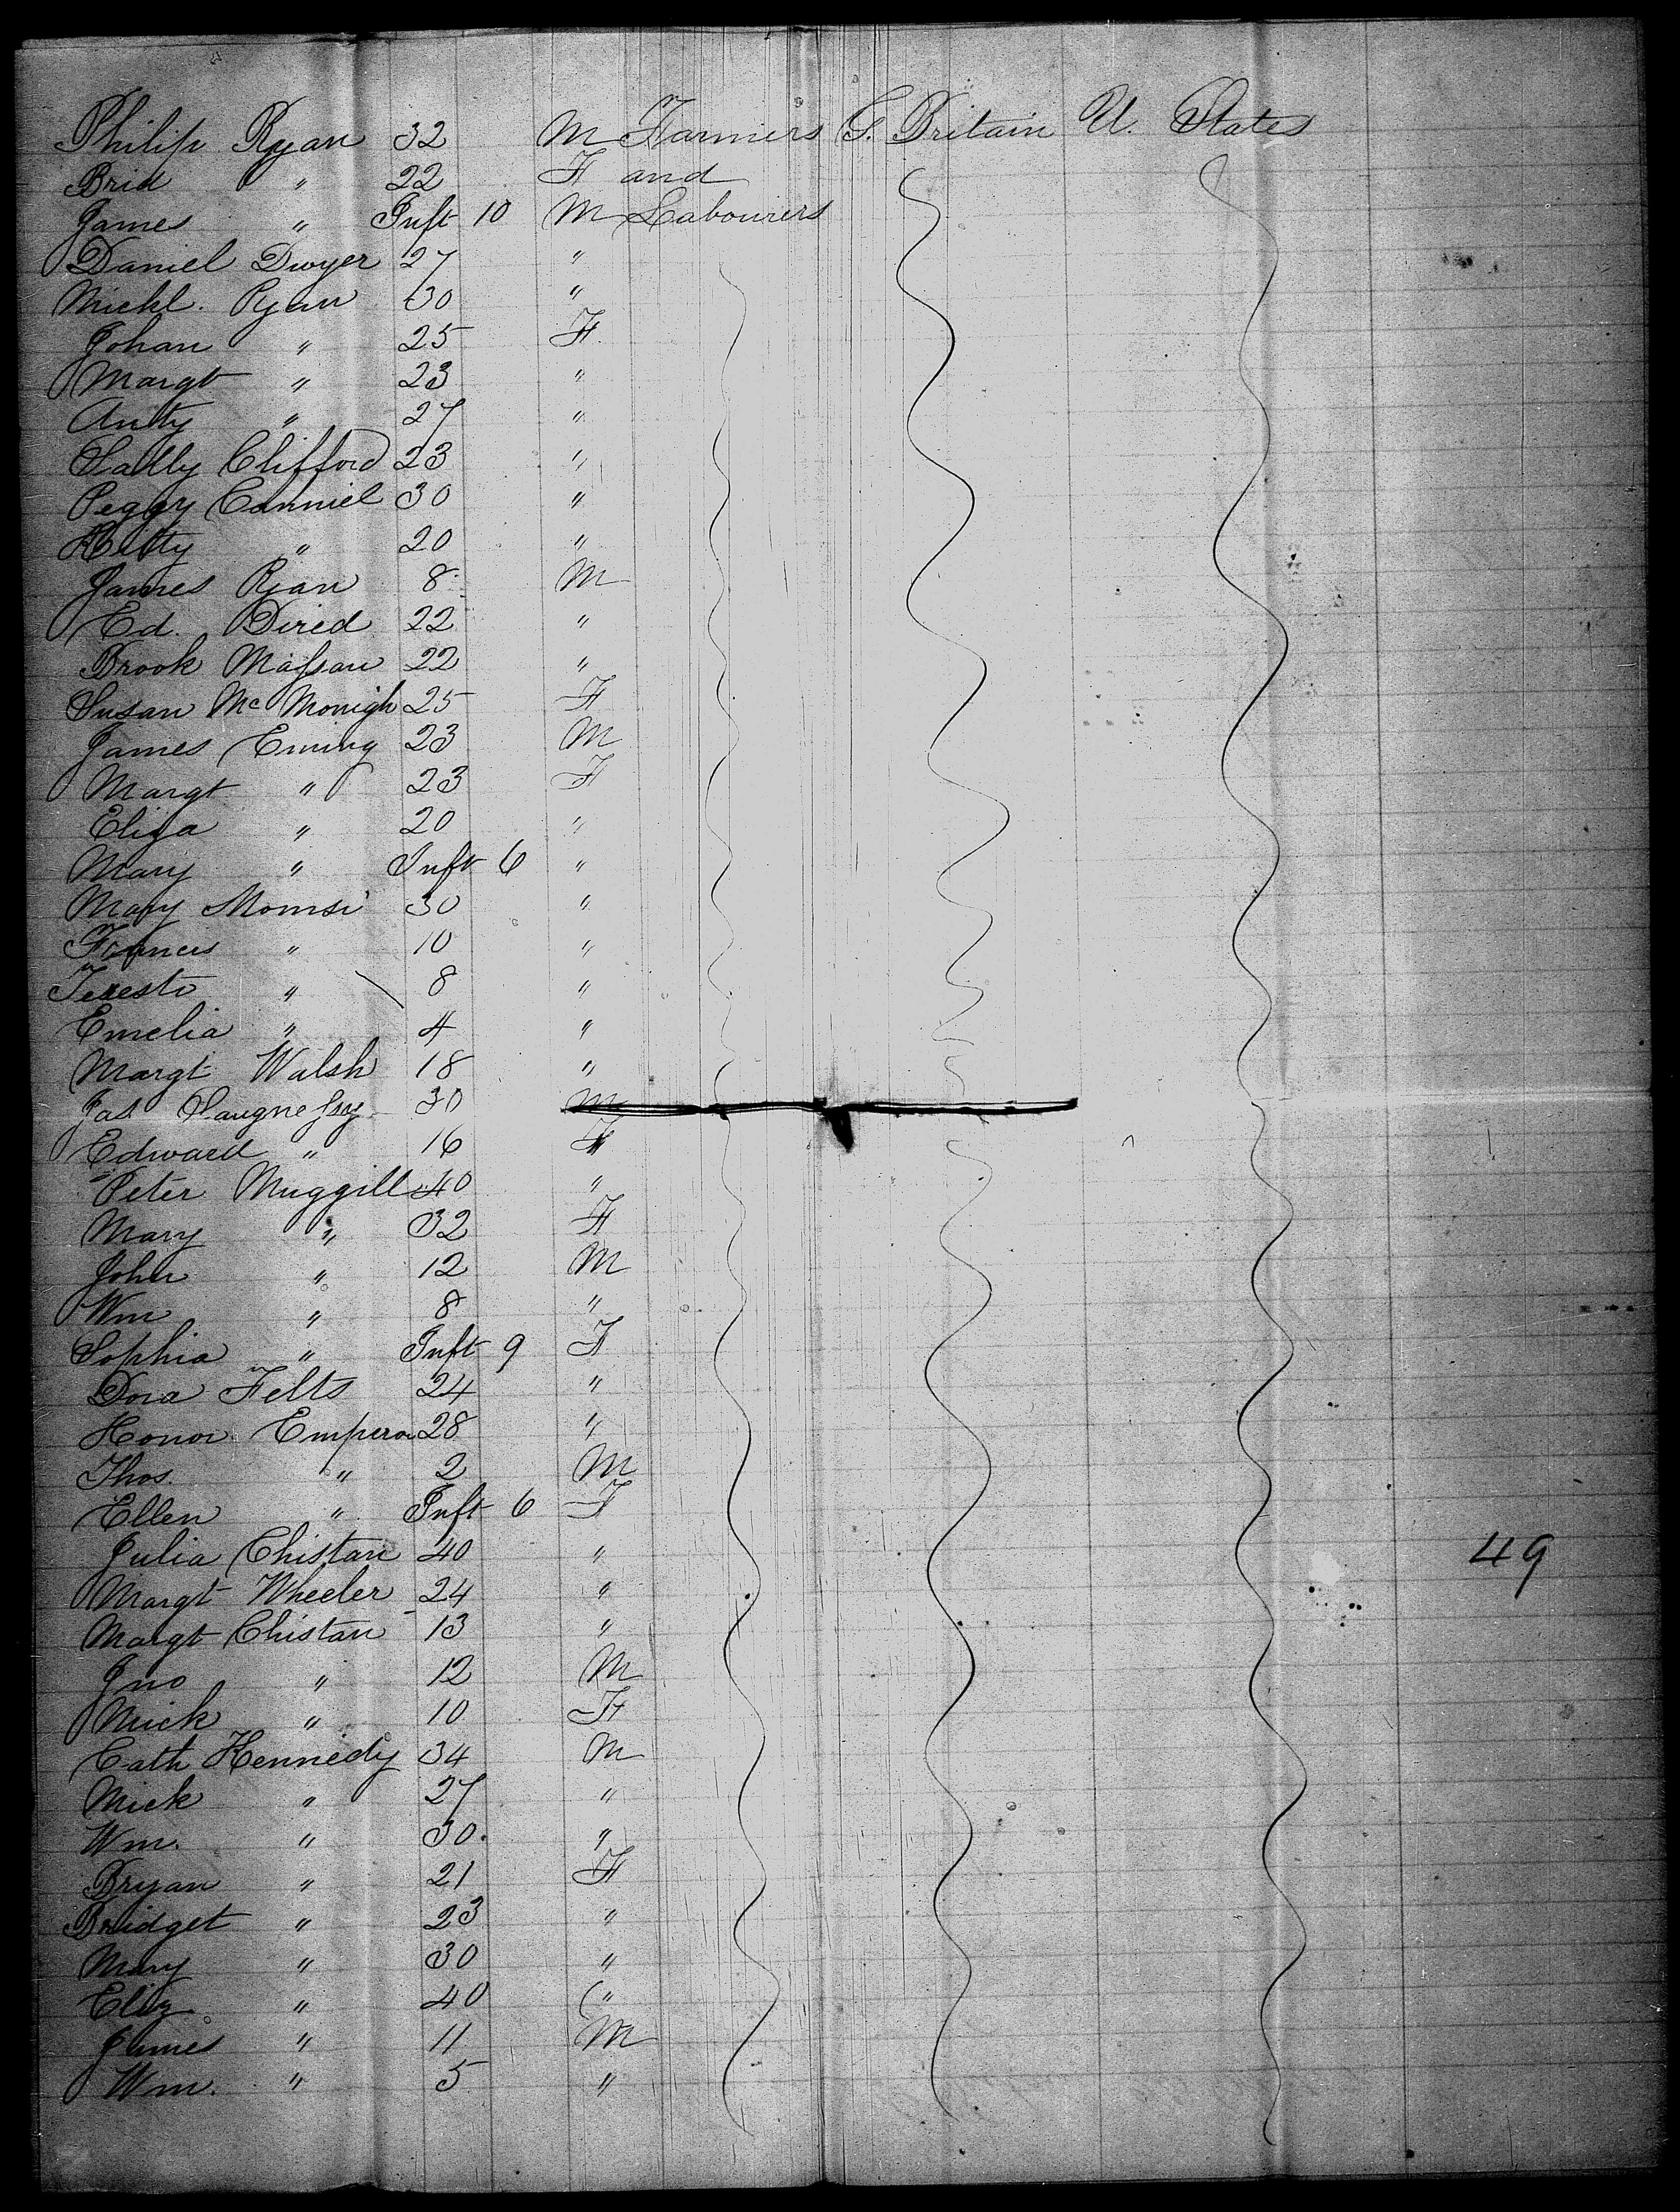 Philip Ryan 32 M Farmers G. Britain U. States
Brid " 22 F and
James " Inft 10 M Labourers
Daniel Dwyer 27 "
Michl. Ryan 30 "
Johan " 25 F.
Margt " 23 "
Anty " 27 "
Sally Clifford 23 "
Peggy Canniel 30 "
Kitty " 20 "
James Ryan 8 M
Ed. Dired 22 "
Brook Massan 22 "
Susan Mc Monigh 25 F
James Ewing 23 M
Margt " 23 F
Eliza " 20 "
Mary " Inft 6 "
Mary Momsi 30 "
Frances " 10 "
" 8 "
Emelia " 4 "
Margt Walsh 18 "
Jas Saugnessy 30 M
Edward " 16 F
Peter Muggill 40 "
Mary " 32 F
John " 12 M
Wm " 8 "
Sophia " Inft 9 F
Dora Felts 24 "
Honor Emperor 28 "
Thos. " 2 M
Ellen " Inft 6 F
Julia Chistan 40 "
49
Margt Wheeler 24 "
Margt Chistan 13 "
Jno " 12 M
Mick " 10 F
Cath Kennedy 34 M
Mick " 27 "
Wm. " 30. "
Bryan " 21 F
Bridget " 23 "
Mary " 30 "
Eliz " 40 "
James " 11 M
Wm. " 5 "